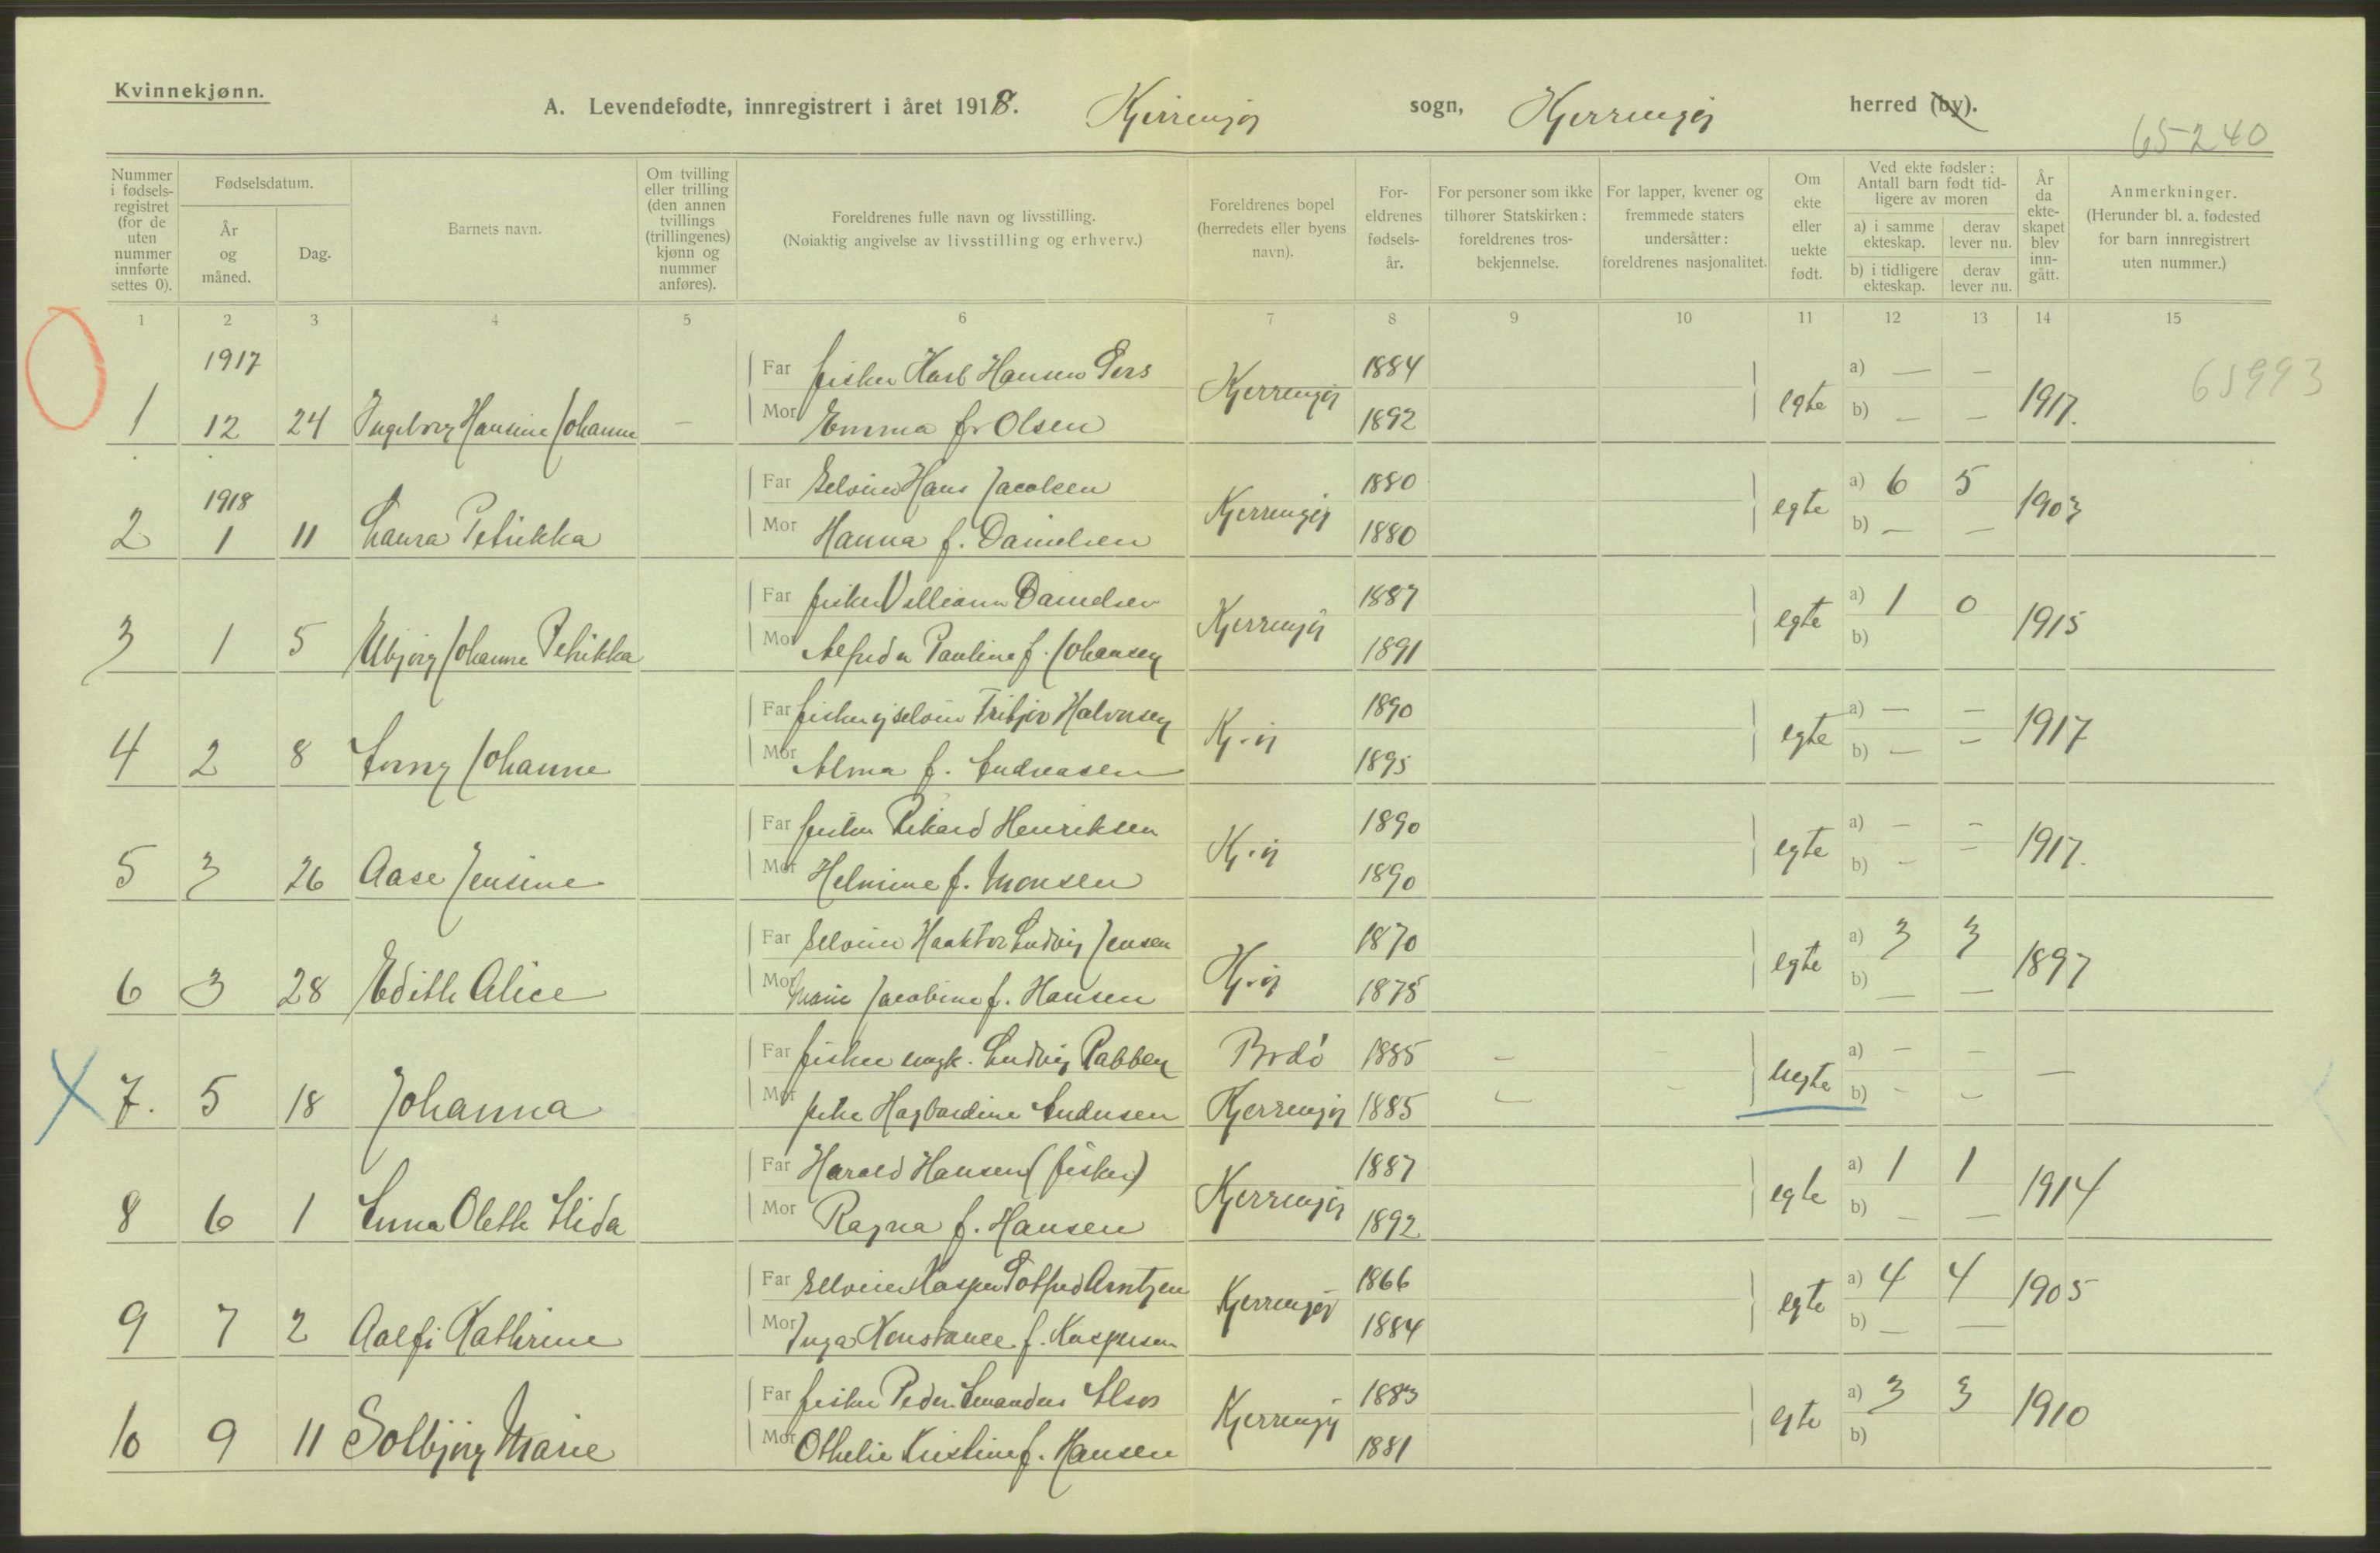 Kvinnekjønn.
A. Levendefødte, innregistrert i året 1918. Kjerringøy sogn, Kjerringøy herred (by).
65240
Nummer i fødsels-registret (for de uten nummer innførte settes 0).
Fødselsdatum.
År og måned.
Dag.
Barnets navn.
Om tvilling eller trilling (den annen tvillings (trillingenes) kjønn og nummer anføres).
Foreldrenes fulle navn og livsstilling.
(Nøiaktig angivelse av livsstilling og erhverv.)
Foreldrenes bopel (herredets eller byens navn).
For-eldrenes fødsels-år.
For personer som ikke tilhører Statskirken: foreldrenes tros-bekjennelse.
For lapper, kvener og fremmede staters undersåtter: foreldrenes nasjonalitet.
Om ekte eller uekte født.
Ved ekte fødsler: Antall barn født tid-ligere av moren
a) i samme ekteskap.
derav lever nu.
b) i tidligere ekteskap.
derav lever nu.
År da ekte-skapet blev inn-gått.
Anmerkninger.
(Herunder bl. a. fødested for barn innregistrert uten nummer.)
1 2 3 4 5 6 7 8 9 10 11 12 13 14 15
1917
Far fisker Karl Hansen 1884 a) — —
1 12 24 Ingeborg Hansine Johanne — Kjerringøy egte 1917. 65993
Mor Emma f. Olsen 1892 b) — —
1918
Far Selveier Hans Jacobsen 1880 a) 6 5
2 1 11 Laura Petrikka Kjerringøy egte 1903
Mor Hanna f. Danielsen 1880 b) — —
Far fisker Villiam Danielsen 1887 a) 1 0
3 1 5 Johanne Petrikka Kjerringøy egte 1915
Mor Alfrida Pauline f. Johansen 1891 b)
Far fisker Halvorsen 1890 a) — —
4 2 8 Johanne Kj.øy egte 1917
Mor Alma f. Andreasen 1895 b) — —
Far fisker Rikard Henriksen 1890 a) — —
5 3 26 Aase Jensine Kj.øy egte 1917.
Mor Helmine f. Monsen 1890 b) —
Far Selveier Ludvig Jensen 1870 a) 3 3
6 3 28 Edith Alice Kj.øy egte 1897
Mor Marie Jacobine f. Hansen 1875 b) — —
Far fisker ungk. Ludvig Rabben Bodø 1885 — a) — —
7. 5 18 Johanna uegte —
Mor pike Hagbardine Andersen Kjerringøy 1885 — b) — —
Far Harald Hansen (fisker) 1887 a) 1 1
8 6 1 Anna Oleth Alida Kjerringøy egte 1914
Mor Ragna f. Hansen 1892 b) — —
Far Selveier Kasper Arntzen 1866 a) 4 4
9 7 2 Kathrine Kjerringøy egte 1905
Mor Inga Konstance f. Kaspersen 1884 b) — —
Far fisker Peder 1883 a) 3 3
10 9 11 Solbjørg Marie Kjerringøy egte 1910
Mor Othelie Kristine f. Hansen 1881 b)